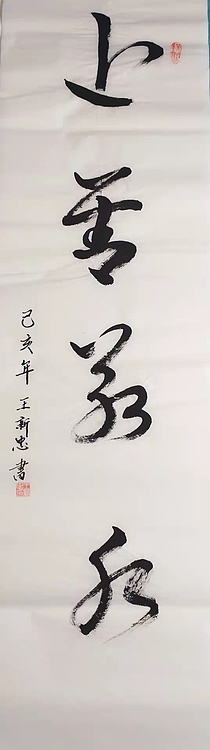 上善若水
己亥年 王新忠書